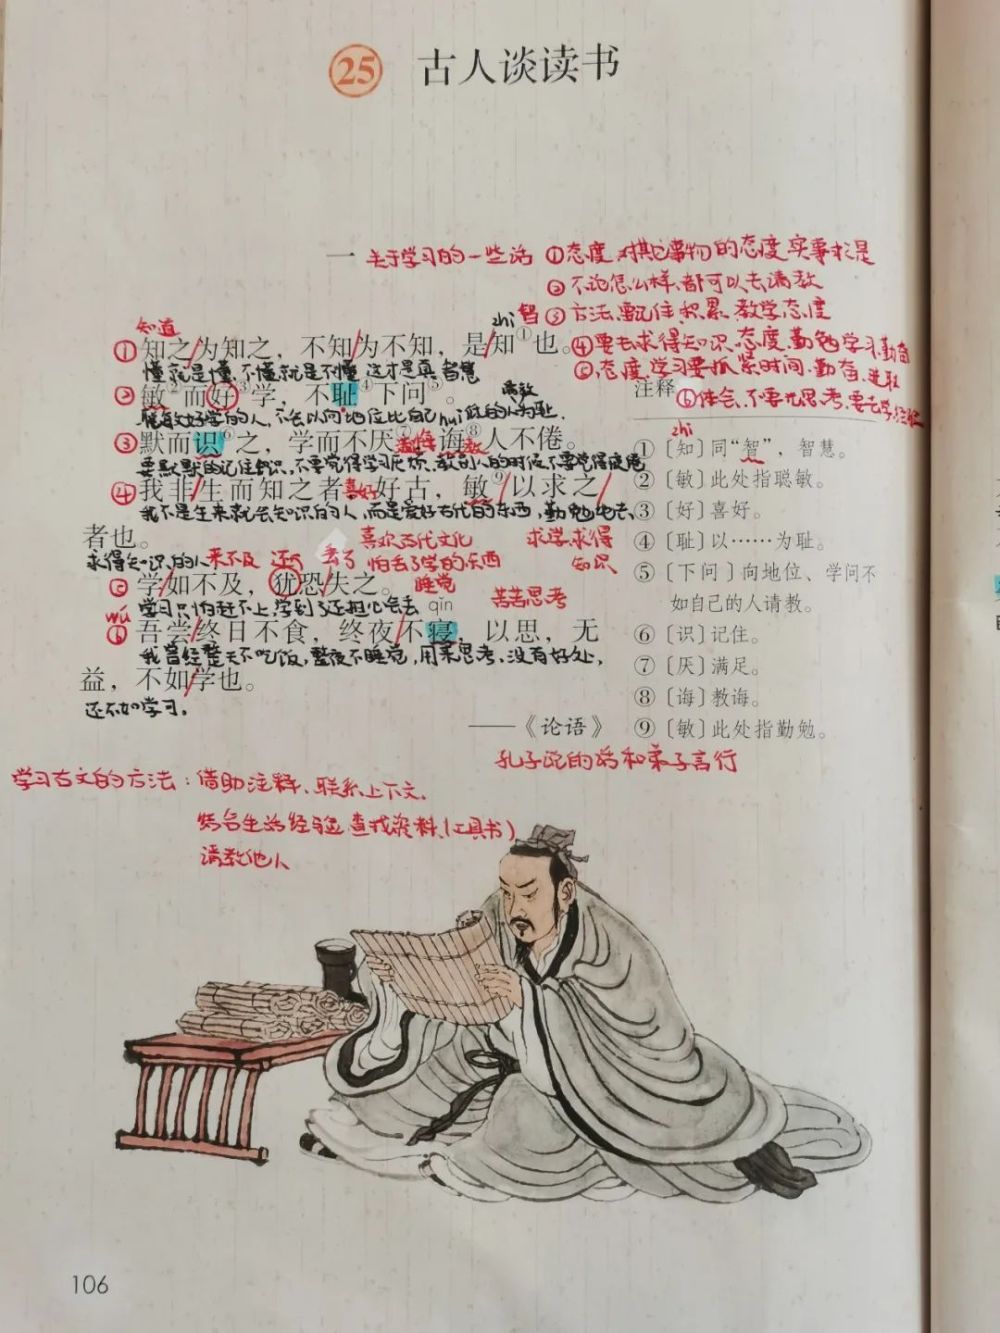 25 古人谈读书
一 关于学习的一些话 ①态度,对其它事物的态度,实事求是
②不论怎么样,都可以去请教
③方法,要记住积累,教学态度
④要去求得知识,态度,勤勉学习,勤奋
⑤态度,学习要抓紧时间,勤奋,进取
⑥体会,不要光思考,要去学
知道
zhì 智
①知之/为知之,不知/为不知,是/知①也。
懂就是懂,不懂就是不懂,这才是真智慧
请教
②敏②而好③学,不耻④下问⑤。
③默而识⑥之,学而不厌⑦,诲⑧人不倦。
教诲
④我非/生而知之者,好古,敏⑨/以求之/
喜好
我不是生来就会知识的人,而是爱好古代的东西,勤勉地去
者也。
喜欢古代文化 求学,求得
知识
求得知识的人 来不及 还 丢了 怕丢了学的东西
⑤学/如不及,犹恐/失之。
睡觉
学习只怕赶不上,学到了还担心会丢 qǐn 苦苦思考
wú
⑥吾尝/终日不食,终夜/不寝,以思,无
我曾经整天不吃饭,整夜不睡觉,用来思考,没有好处,
益,不如/学也。
还不如学习。
——《论语》
孔子说的话和弟子言行
注释
zhì
①〔知〕同“智”,智慧。
②〔敏〕此处指聪敏。
③〔好〕喜好。
④〔耻〕以……为耻。
⑤〔下问〕向地位、学问不
如自己的人请教。
⑥〔识〕记住。
⑦〔厌〕满足。
⑧〔诲〕教诲。
⑨〔敏〕此处指勤勉。
学习古文的方法:借助注释、联系上下文、
结合生活经验,查找资料,(工具书)
请教他人
106